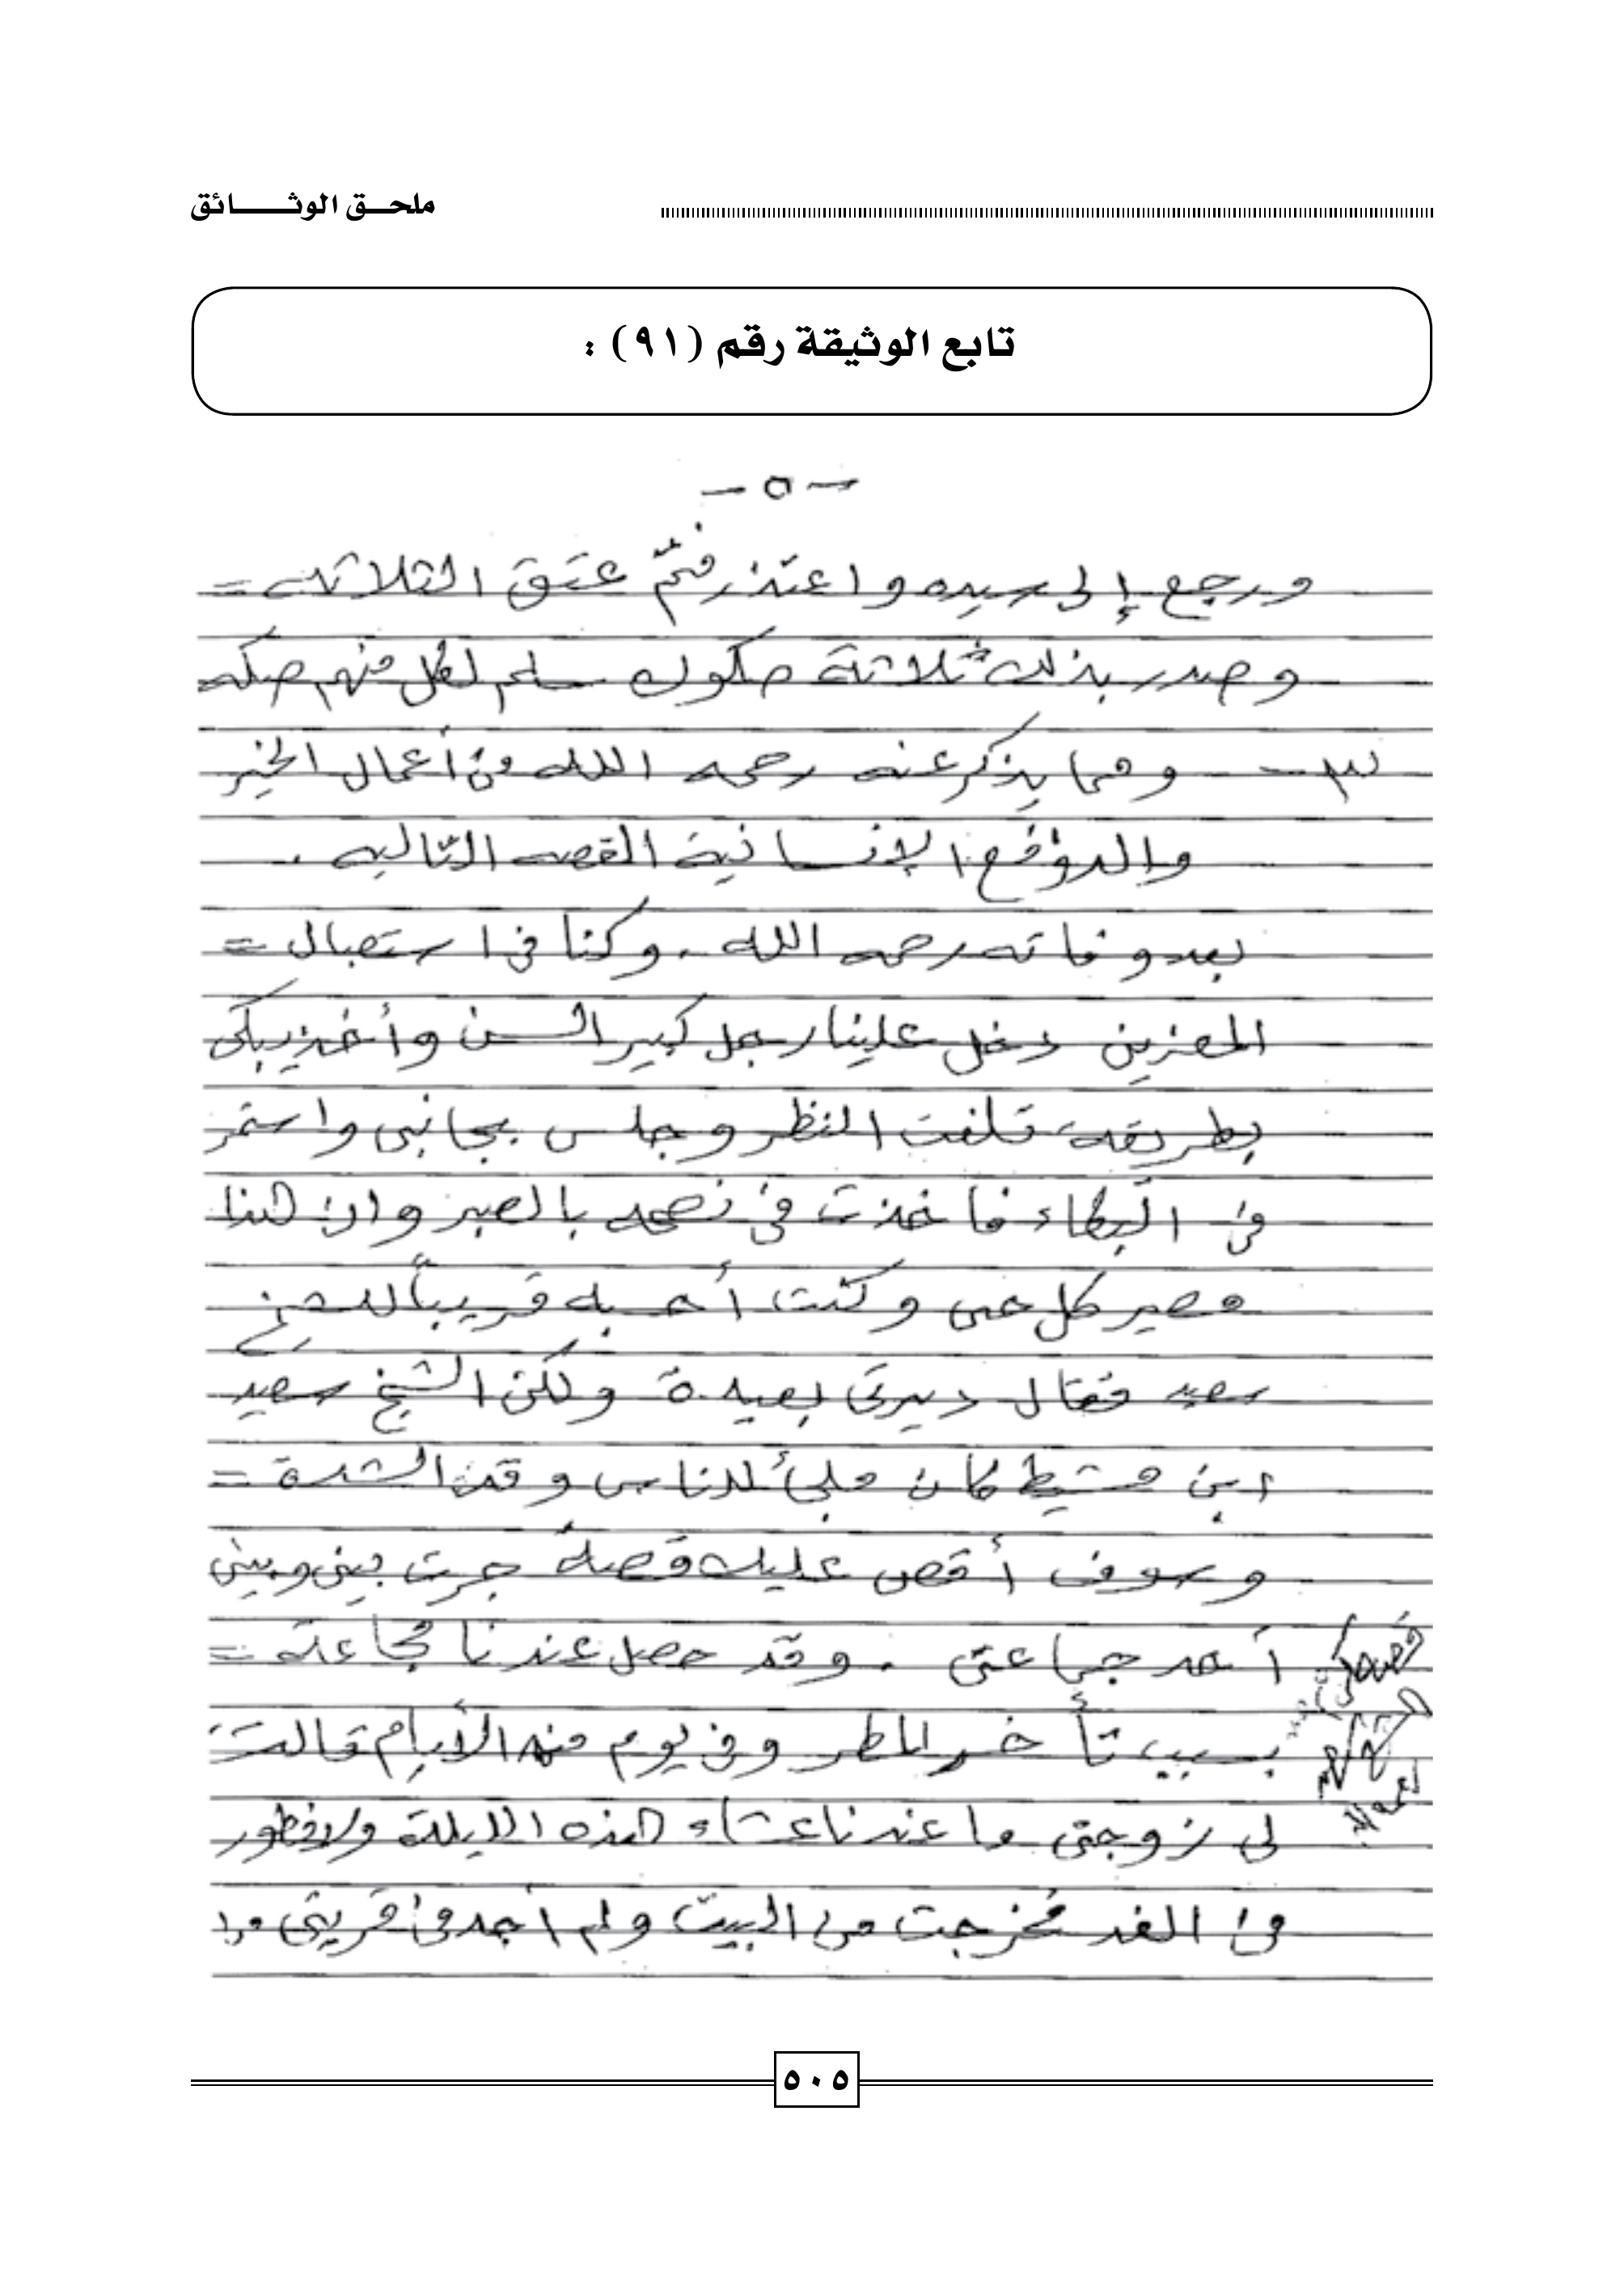 ملحق الوثائق
تابع الوثيقة رقم (٩١) :
- ٥ -
ورجع إلى سيده واعتذر فتمّ عتق الثلاثة =
وصدر بذلك ثلاثة صكوك سلم لكل منهم صكه
٣ - ومما يذكر عنه رحمه الله من أعمال الخير
الإنسانية القصه التاليه .
بعد وفاته رحمه الله . وكنا في استقبال =
المعزين دخل علينا رجل كبير السن وأخذ يبكي
بطريقة تلفت النظر وجلس بجانبي واستمر
في البكاء فأخذت في نصحه بالصبر وان هذا
مصير كل حي وكنت أحسبه قريباً للشيخ
سعيد فقال ديرتي بعيدة ولكن الشيخ سعيد
ابن مشيط كان ملجأ للناس وقت الشدة =
وسوف أقص عليك قصة جرت بيني وبين
أحد جماعتي . وقد حصل عندنا مجاعة =
بسبب تأخر المطر وفي يوم من الأيام قالت
لي زوجتي ما عندنا عشاء هذه الليلة ولا فطور
في الغد فخرجت من البيت ولم أجد في قريتي من
٥٠٥